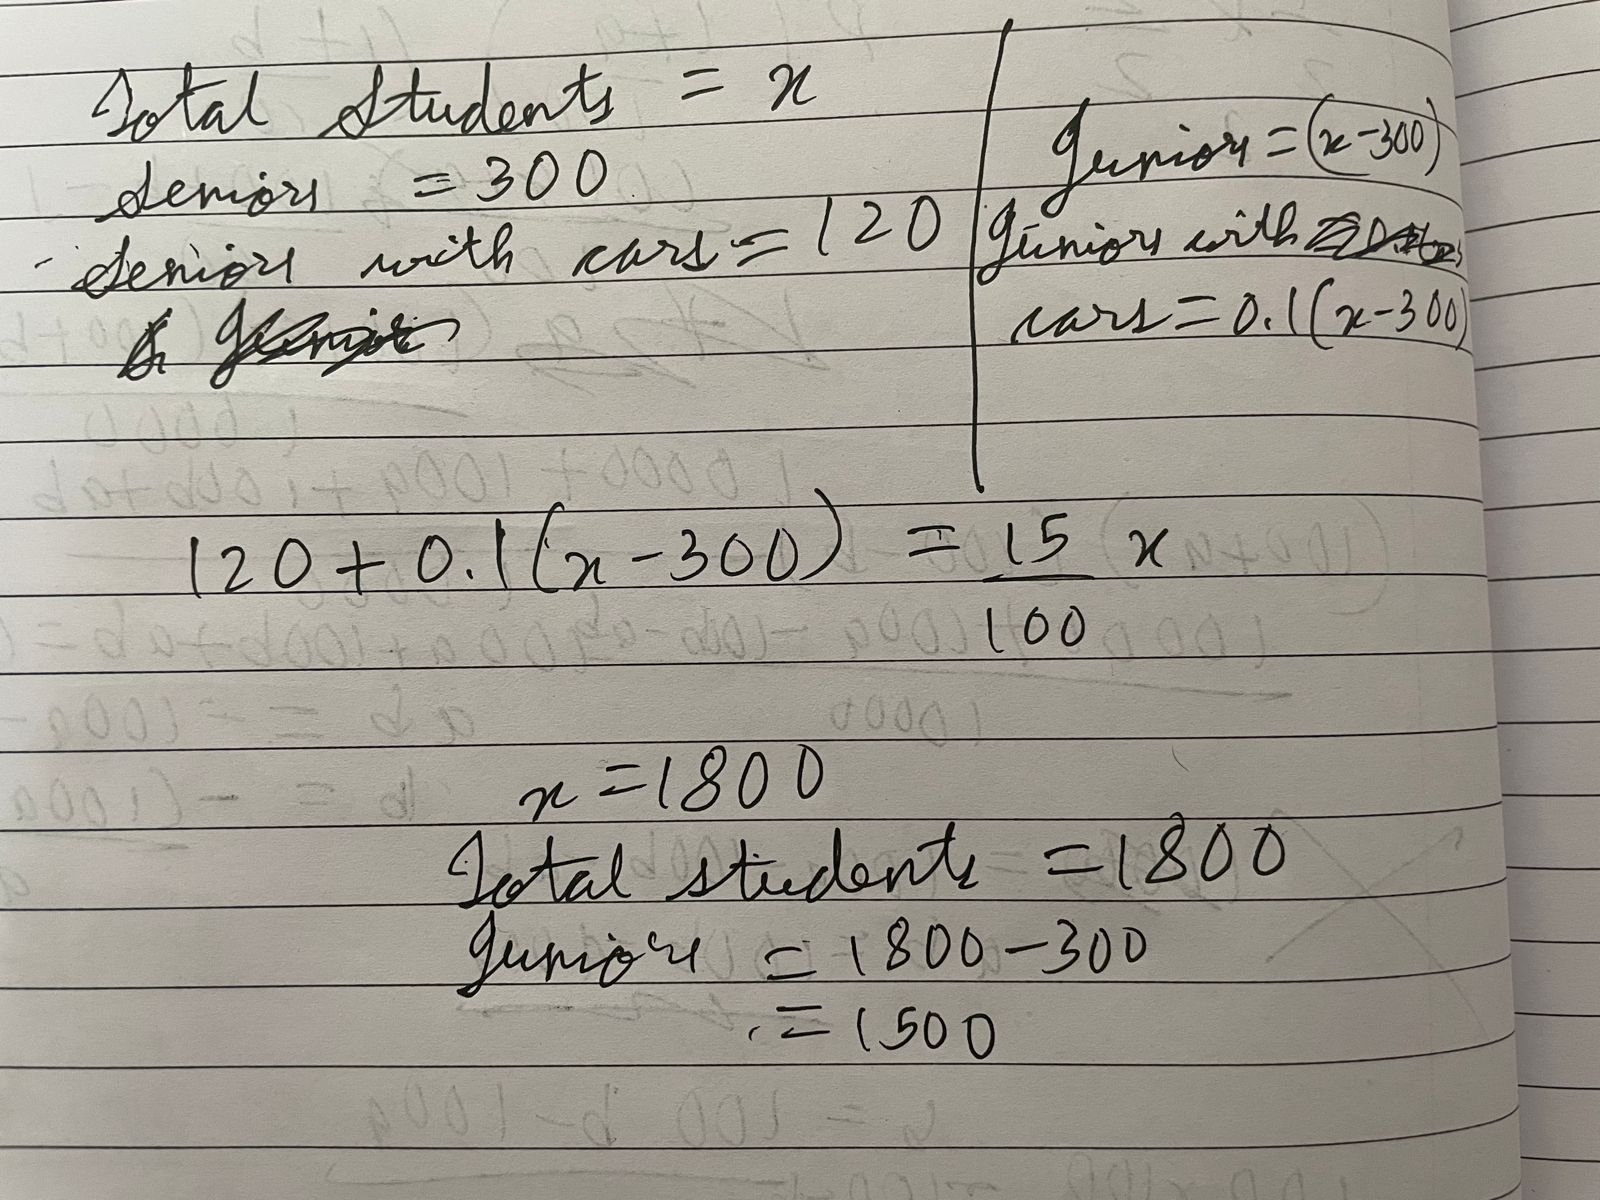 Total Students = x
Seniors = 300
Seniors with cars = 120
Juniors = (x-300)
Juniors with
cars = 0.1(x-300)
120 + 0.1(x-300) = 15/100 x
x = 1800
Total students = 1800
Juniors = 1800-300
= 1500